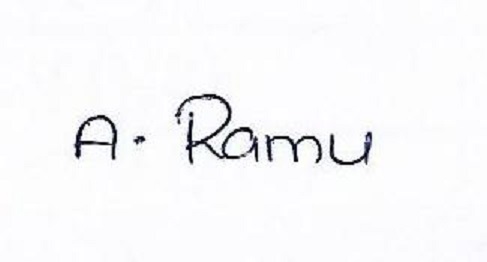 A. Ramu